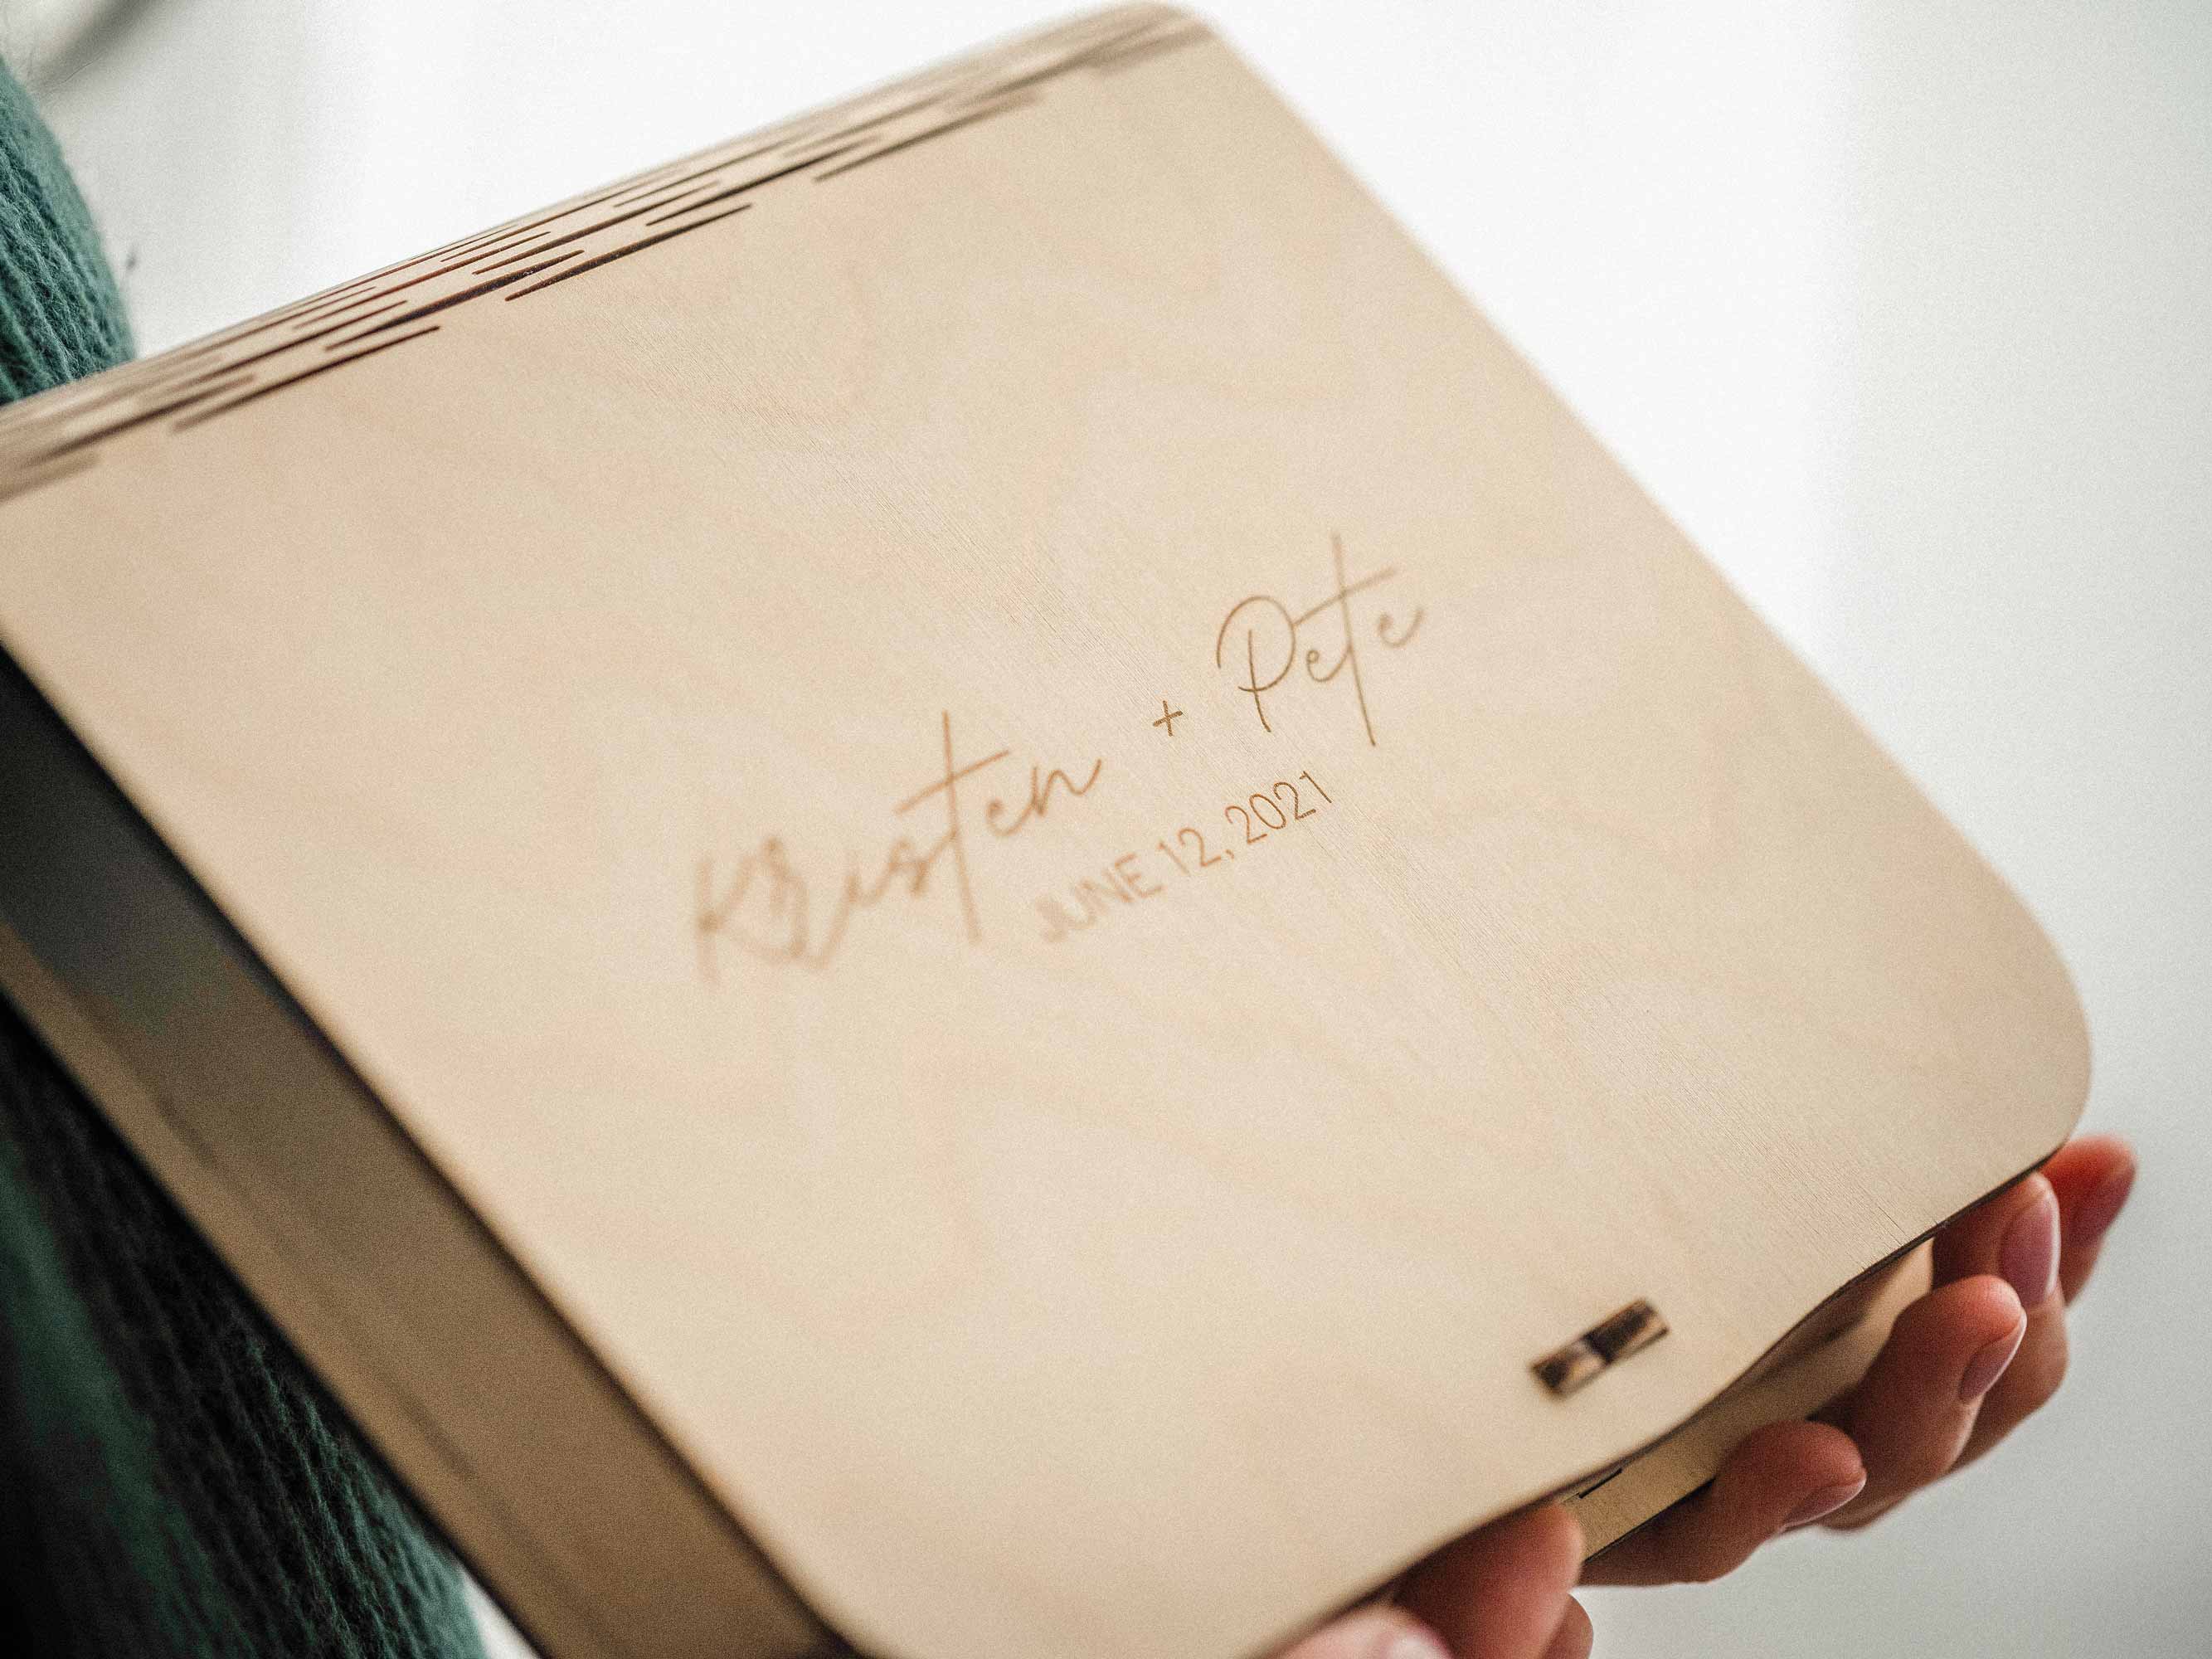 Kristen + Pete
JUNE 12, 2021